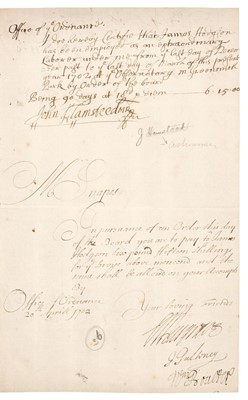 Office of ye Ordnance
I doe hereby Certifie that James Hodgson
has been Employed as an extraordinary
Labourer under me from ye last day of Decem
ber past to ye last day of March of this present
year 1702 at ye Observatory in Greenwich
Park by Order of the Board
Being 90 days at 18d p diem 6 - 15 - 00
John Flamsteed
J Flamsteed
Mr
In pursuance of an Order this day
of the Board you are to pay to James
Hodgson Six pound fifteen shillings
for ye Service above menconed and the
same shall be allowed on your Accompts
By
Office of Ordnance
20th April 1702
Your loving friends
J Pulteney